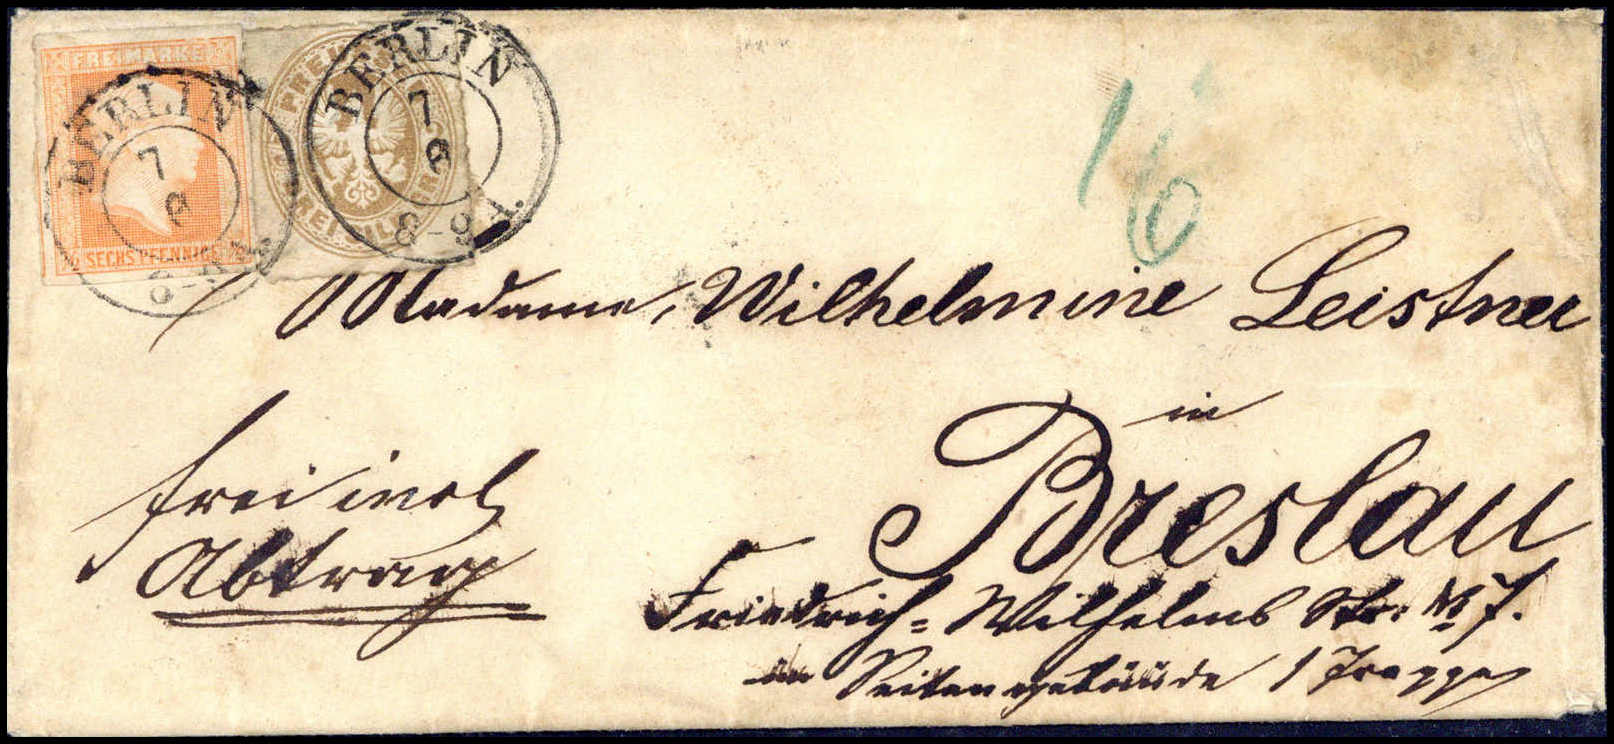 FREIMARKE
½ SECHS PFENNIGE
BERLIN
7
8
BERLIN
7
8
8-9
16
Madame, Wilhelmine Leistner
in
Breslau
frei incl
Abtrag
Friedrich-Wilhelms Str: No 7.
im Seitengebäude 1 Treppe